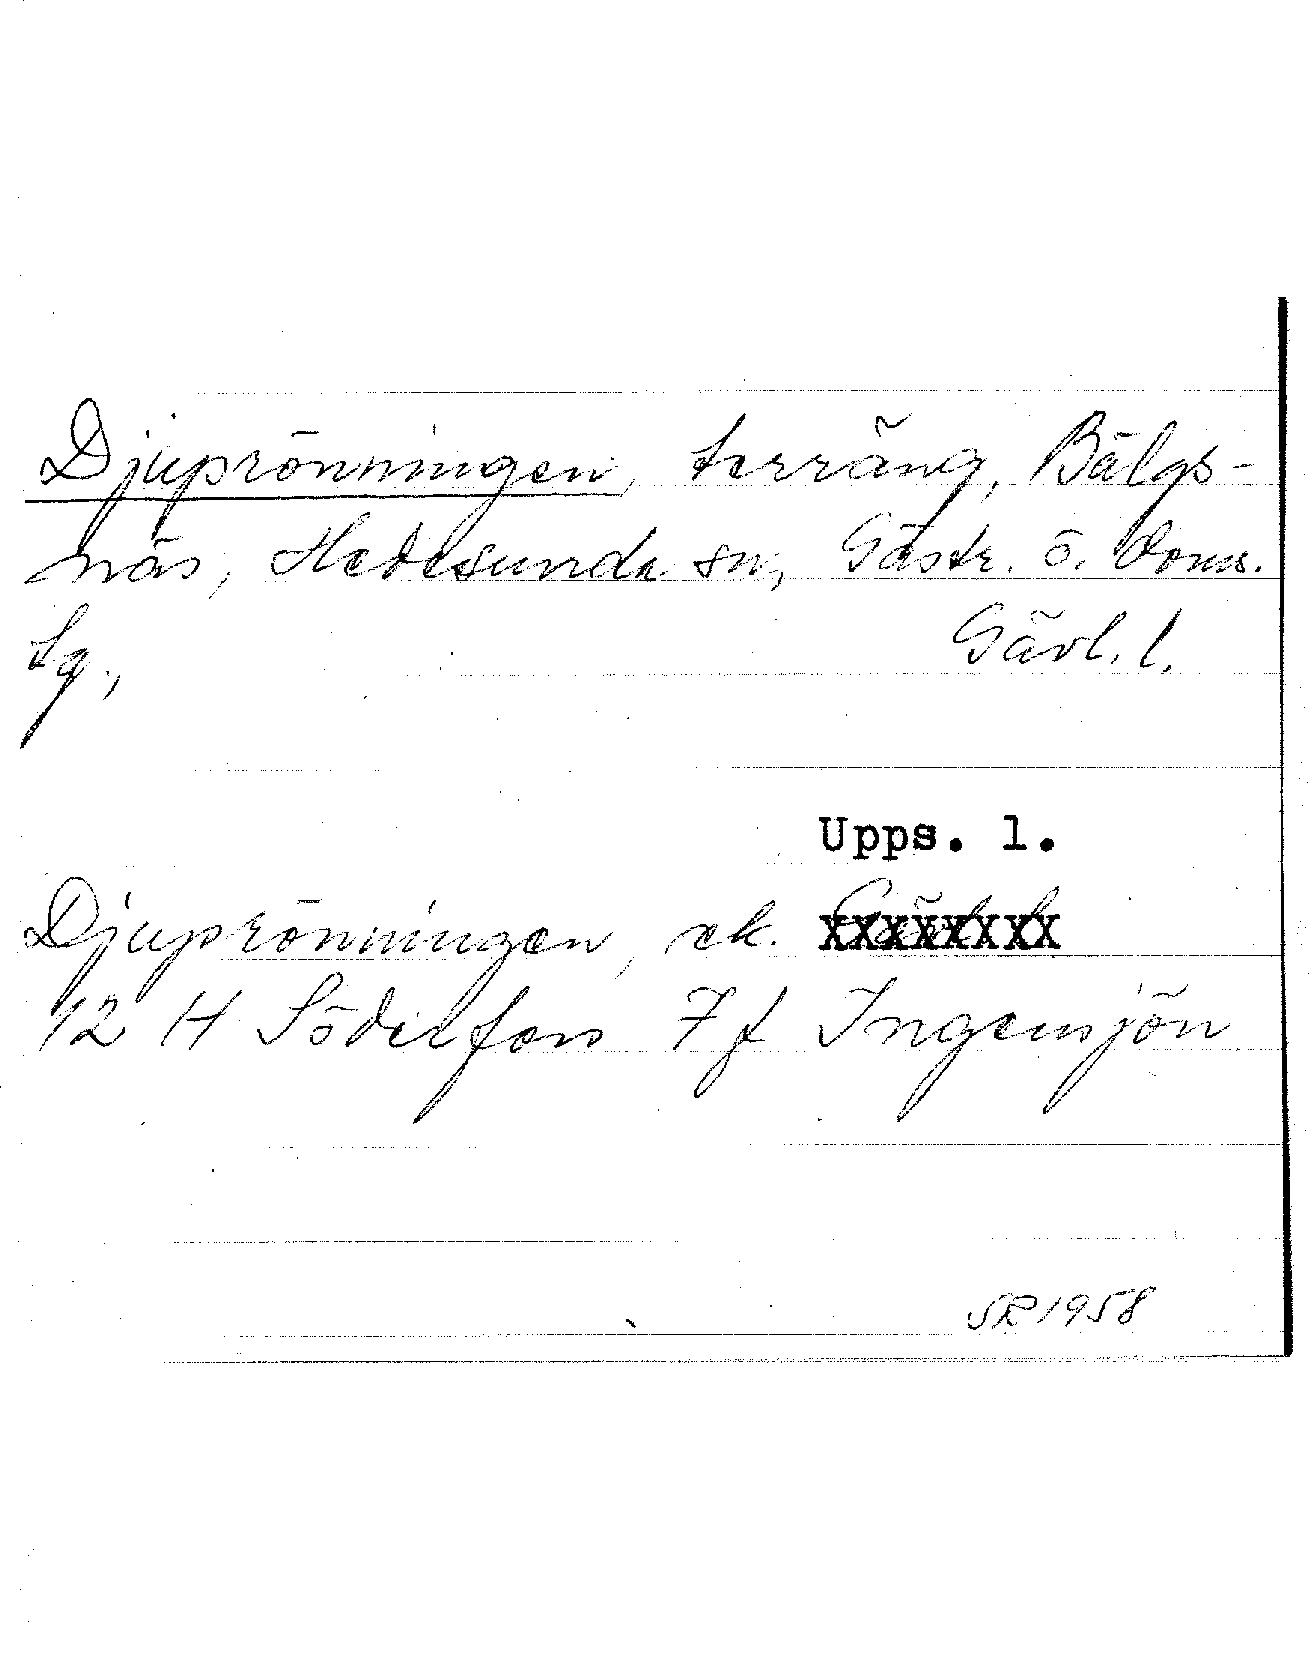 Djuprönningen, terräng, Bälgs-
näs, Hedesunda sn, Gästr. ö. doms.
sg., Gävl. l.
Upps. l.
Djuprönningen, ek.
12 H Söderfors 7 f Ingemsjön
SR 1958